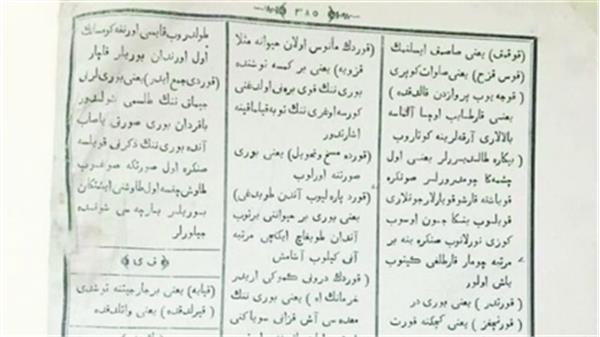 ﴿ ٣٨٥ ﴾
(قوقف) یعنی صاصف ایسلنك
(قوس قزح) یعنی صاوات كوپری
(قوجه یوب پروازدن قالدقده)
یعنی قارطایب اوچا آلماسه
بالالاری آرقه لرینه كوتاروب
بیكاره طالدیررلر یعنی اول
چشمه كا چومدررلر صونكره
قویاشنه قارشو قویارلار جونلاری
قویلوب ینكا جون اوسوب
كوزی نورلانوب صنكره ینه بر
مرتبه چومار قارطلغی كیتوب
باش اولور
(قورتدر) یعنی بوری در
(قورتچغز) یعنی كچكنه قورت
(قوردك مأنوس اولان حیوانه مثلا
قزویه) یعنی بر كسه توشنده
بوری ننك قوی برونی اولدغنی
كورسه اوغری ننك توبه قیلماقینه
اشارتدور
(قورده مسخ وتحویل) یعنی بوری
صورتنه اورلوب
(قورد پاره لیوب آندن طویدغی)
یعنی بوری بر حیواننی یرتوب
آندان طویغاچ ایكاچی مرتبه
آنی كیلوب آشامش
(قوردك درونی كموكی اریدر
خرمانك اه) یعنی بوری ننك
معده سی آش قزانی سویاكنی
طولدروب قاپسی اورنغه كومسانك
اول اورندان بوریلار قاچار
(قوردی جمع ایدر) یعنی بوری لرنی
جیمانی ننك طلسمی شولدور
باقردان بوری صورتی یاصاب
آنده بوری ننك ذكرنی قویلسه
صنكره اول صورتكه صوغلوب
طاوش چقسه اول طاوشنی ایشتكان
بوریلر بارچه سی شونده
جیاولرلر
﴿ ق ی ﴾
(قیایه) یعنی یرمار جیتنه توشدی
(قیرلدقده) یعنی واتلدقده